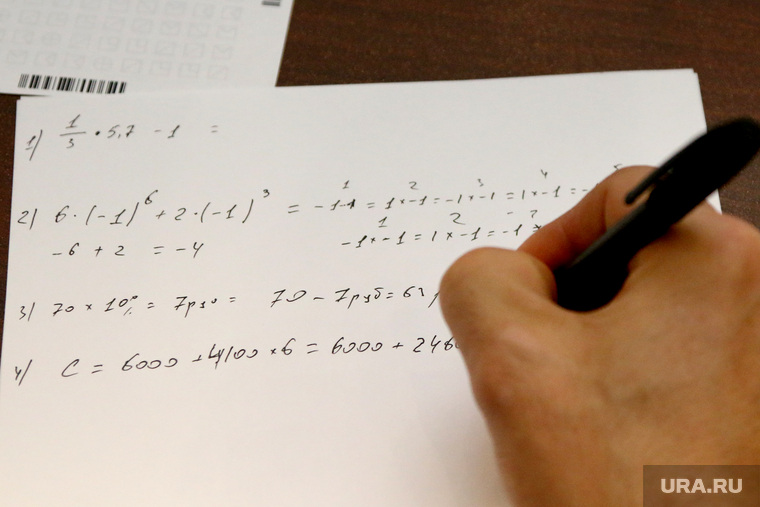 1) 1/3 · 5,7 - 1 =
2) 6·(-1)⁶ + 2·(-1)³ = -1·-1 = 1×-1 = -1×-1 = 1×-1 = -
-6 + 2 = -4
-1×-1 = 1×-1 = -1
3) 70 × 10% = 7руб = 70 - 7руб = 63
4) C = 6000 + 4100 × 6 = 6000 + 246
URA.RU